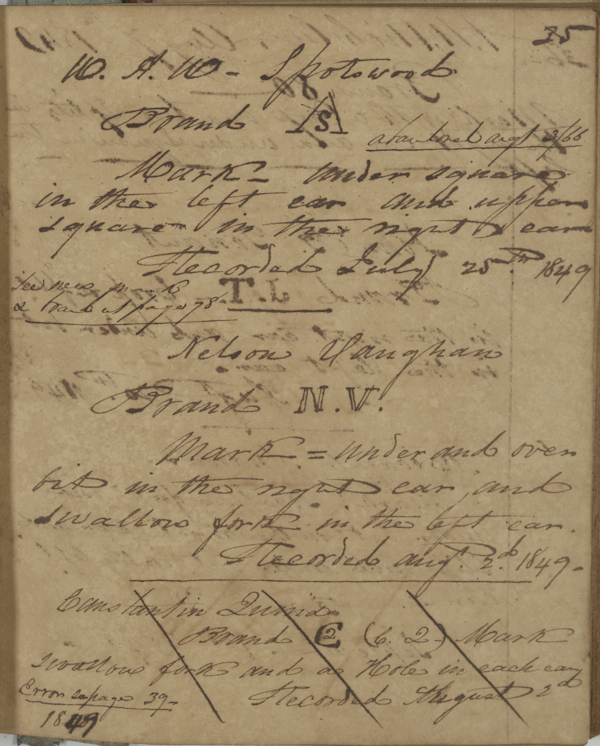 35
W. A. W. Spotswood
Brand S
abandoned augt 2/66
Mark - under square
in the left ear and upper
square in the right ear
Recorded July 25th 1849
See new mark
& brand at page 78
Nelson Vaughan
Brand N.V.
Mark = under and over
bit in the right ear and
swallow fork in the left ear.
Recorded augt. 2d. 1849 -
Constantin
Brand C2 (C. 2.) Mark
swallow fork and a Hole in each ear
Error see page 39 -
Recorded August 2d
1849